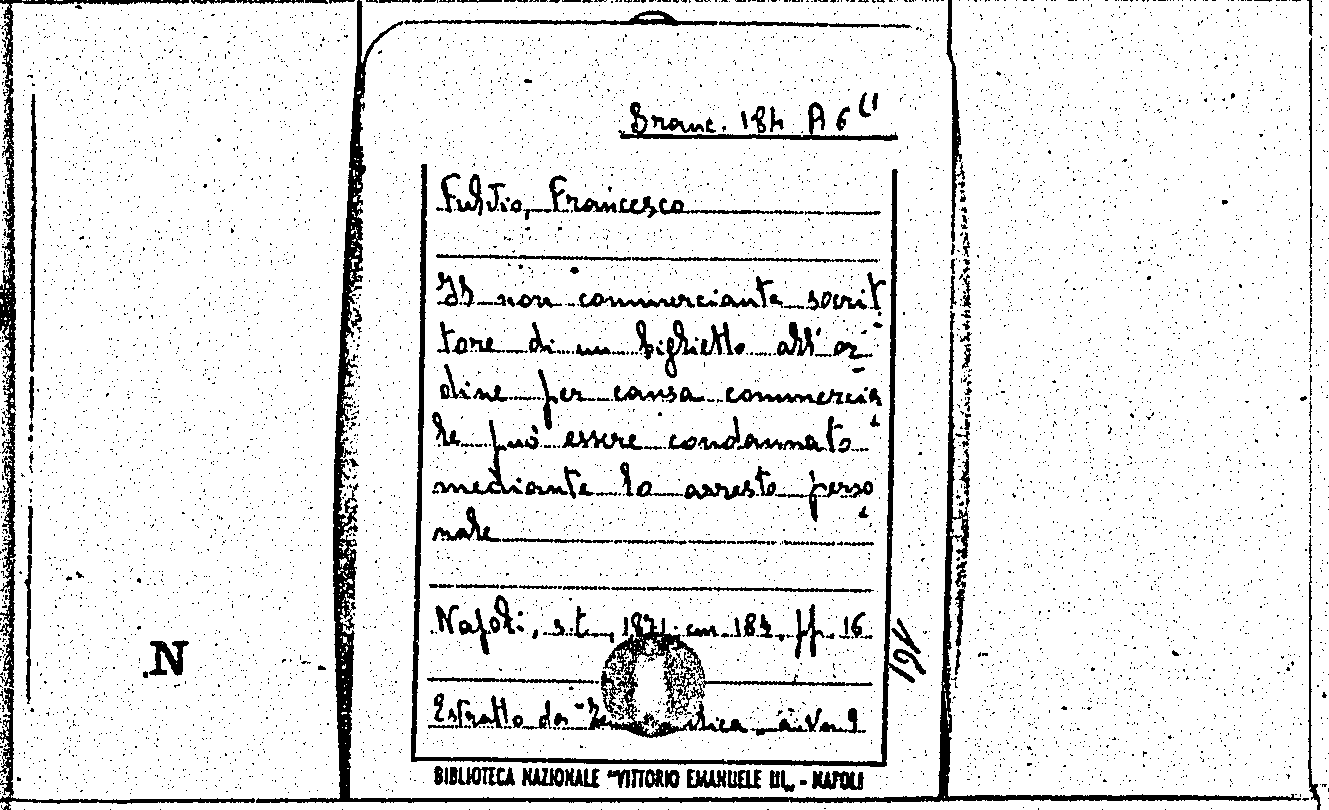 Branc. 184 A 6
Fulvio, Francesco
Il non commerciante socrit
tore di un biglietto all'or
dine per causa commercia
le può essere condannato
mediante lo arresto perso
nale
Napoli, s.t., 1871. cm 18½, pp. 16
Estratto da
BIBLIOTECA NAZIONALE "VITTORIO EMANUELE III„ - NAPOLI
N